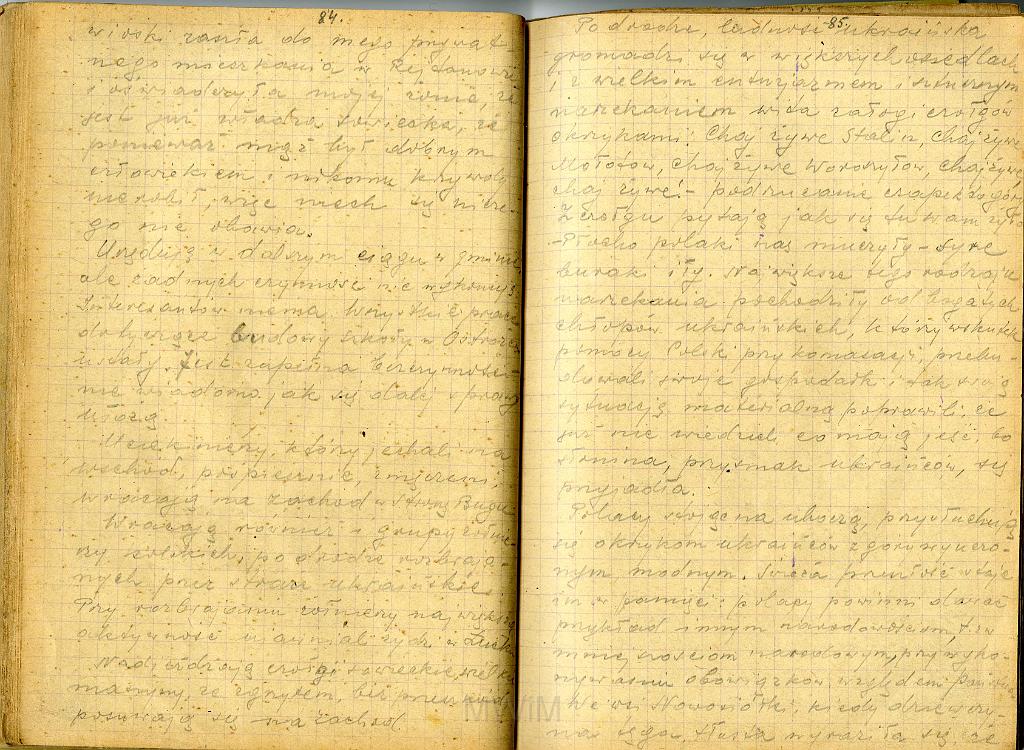 84.
wioski zaszła do mego prywat-
nego mieszkania w Rejtanowie
i oświadczyła mojej żonie, że
jest już władza sowiecka, że
ponieważ mąż był dobrym
człowiekiem i nikomu krzywdy
nie robił, więc niech się nicze-
go nie obawia.
Urzęduję w dalszym ciągu w gminie,
ale żadnych czynności nie wykonuję
Interesantów niema. Wszystkie prace
dotyczące budowy szkoły w
ustały. Jest zupełna bezczynność
nie wiadomo jak się dalej sprawy
ułożą.
którzy jechali na
wschód, pospiesznie, zmęczeni,
wracają na zachód w stronę Bugu
Wracają również i grupy żołnie-
rzy polskich, po drodze rozbraja-
nych przez straże ukraińskie.
Przy rozbrajaniu żołnierzy największą
aktywność ujawniał żyd z
Nadjeżdżają czołgi sowieckie,
maszyny, ze zgrzytem, bez przeszkód
posuwają się na zachód.
85.
Po drodze, ludność ukraińska
gromadzi się w większych osiedlach
i z wielkim entuzjazmem i sztucznym
narzekaniem wita załogi czołgów
okrzykami: Chaj żywe Stalin, chaj żywe
Mołotow, chaj żywe Woroszyłow, chaj żywe
chaj żywe! - podrzucanie czapek do góry
Z czołgu pytają jak się tu wam żyło
- Płocho polaki nas muczyły - syre
buraki iły. Największe tego rodzaju
narzekania pochodziły od bogatych
chłopów ukraińskich, którzy wskutek
pomocy Polski przy komasacji, przebu-
dowali swoje gospodarki i tak swoją
sytuację materialną poprawili, że
już nie wiedzieli co mają jeść, bo
słonina, przysmak ukraińców, się
przyjadła.
Polacy stojąc na uboczu, przysłuchują
się okrzykom ukraińców z góry wyuczo-
nym, modnym. Świeża przeszłość staje
im w pamięci: polacy powinni dawać
przykład innym narodowościom, tzw
mniejszościom narodowym, przy wyko-
nywaniu obowiązków względem Państwa
We wsi Nowosiółki, kiedy
na tęga, tłusta wyraziła się że
MWIM